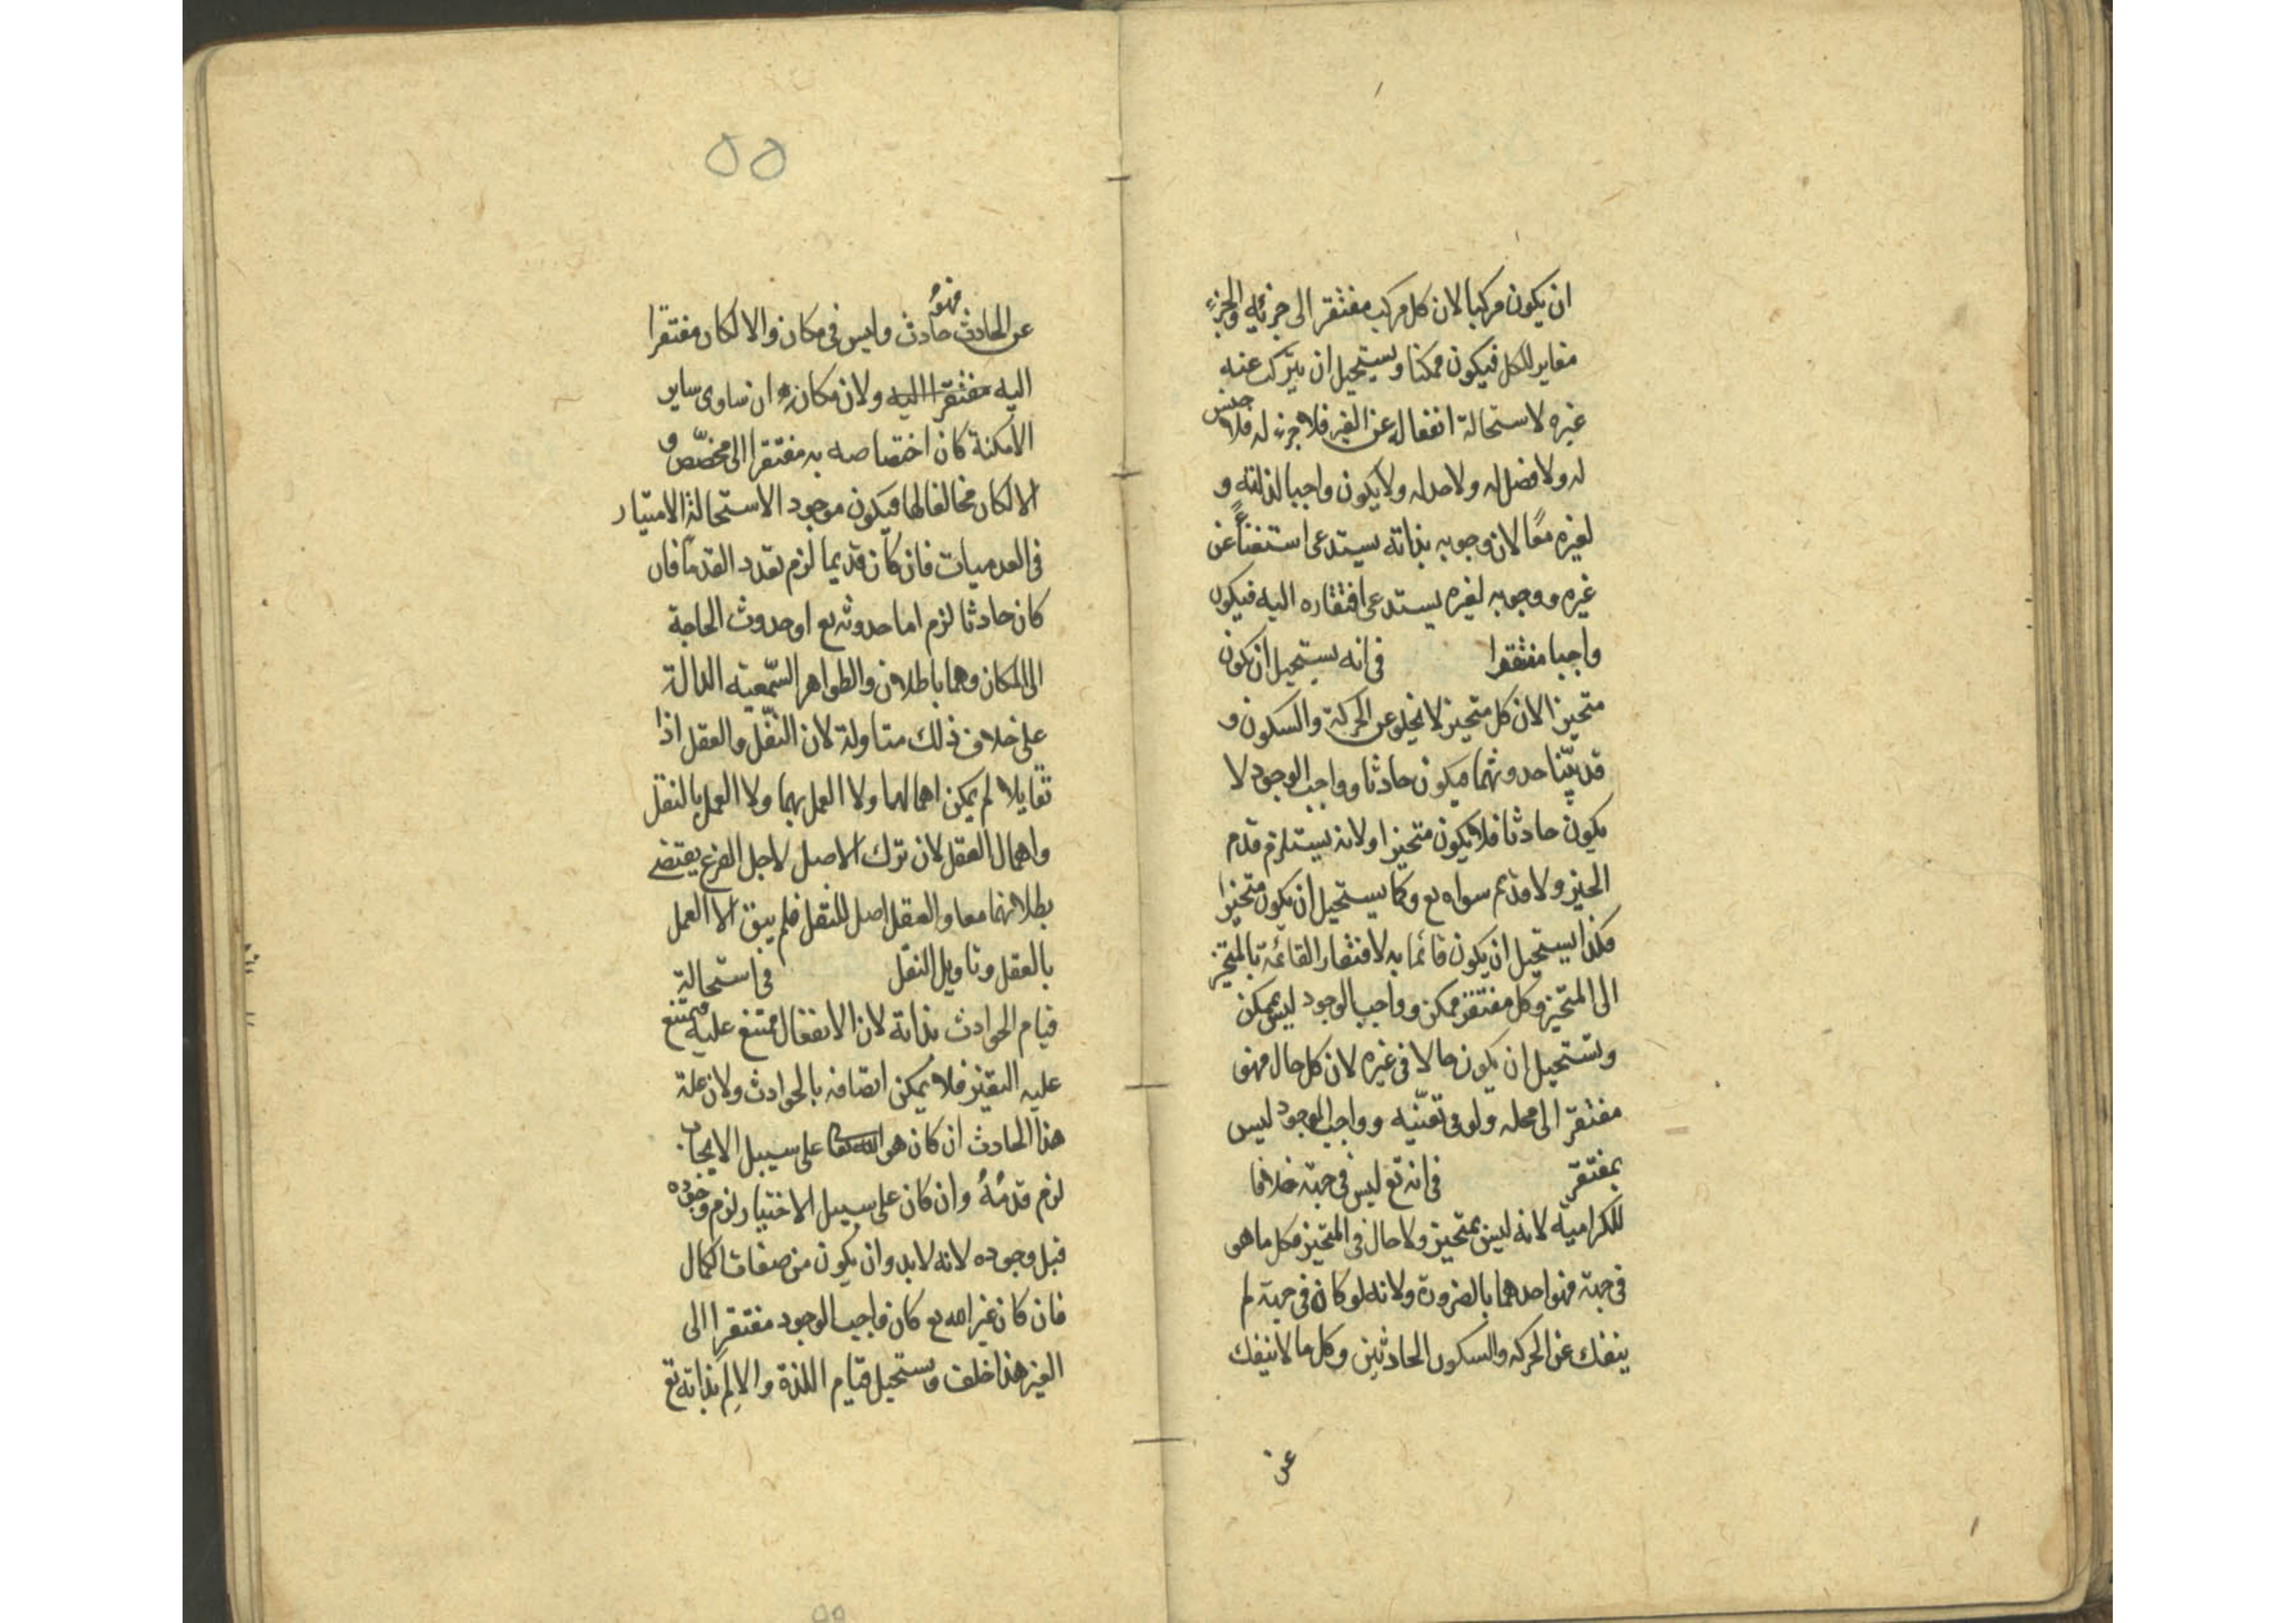 ان يكون مركبا لان كل مركب مفتقر الى جزئيه والجزء
مغاير للكل فيكون ممكنا ويستحيل ان يتركب عنه
غيره لاستحالة انفعاله عن الغير فلا جزء له فلا جنس
له ولا فصل له ولا حد له ولا يكون واجبا لذاته و
لغيره معًا لان وجوبه بذاته يستدعى استغناءً عن
غيره ووجوبه لغيره يستدعى افتقاره اليه فيكون
واجبا مفتقرا فى انه يستحيل ان يكون
متحيزا لان كل متحيز لا يخلو عن الحركة والسكون و
قد بيّنا حدوثهما فيكون حادثا وواجب الوجود لا
يكون حادثا فلا يكون متحيزا ولانه يستلزم قدم
الحيز ولا قديم سواه تع وكما يستحيل ان يكون متحيزا
فكذا يستحيل ان يكون قائما به لافتقار القائمة بالمتحيز
الى المتحيز وكل مفتقر ممكن وواجب الوجود ليس بممكن
ويستحيل ان يكون حالا فى غيره لان كل حال فهو
مفتقر الى محله ولو فى تعيّنه وواجب الوجود ليس
بمفتقر فى انه تع ليس فى جهة خلافا
للكرامية لانه ليس بمتحيز ولا حال فى المتحيز فكل ما هو
فى جهة فهو احدهما بالضرورة ولانه لو كان فى جهة لم
ينفك عن الحركه والسكون الحادثين وكل ما لا ينفك
عن
٥٥
عن الحادث فهو حادث وليس فى مكان والا لكان مفتقرا
اليه مفتقرا اليه ولان مكانه ان ساوى ساير
الامكنة كان اختصاصه به مفتقرا الى مخصّص و
الا لكان مخالفا لها فيكون موجود الاستحالة الامتياز
فى العدميات فان كان قديما لزم تعدد القدما فان
كان حادثا لزم اما حدوثه تع او حدوث الحاجة
الى المكان وهما باطلان والظواهر السّمعيه الدالة
على خلاف ذلك متاولة لان النقل والعقل اذا
تقابلا لم يمكن اهمالهما ولا العمل بهما ولا العمل بالنقل
واهمال العقل لان ترك الاصل لاجل الفرع يقتضى
بطلانهما معا والعقل اصل للنقل فلم يبق الا العمل
بالعقل وتاويل النقل فى استحالة
قيام الحوادث بذاته لان الانفعال ممتنع عليه فيمتنع
عليه التغيّر فلا يمكن اتصافه بالحوادث ولان علة
هذا الحادث ان كان هو الله تعا على سبيل الايجاب
لزم قدمُهُ وان كان على سبيل الاختيار لزم وجوده
قبل وجوده لانه لابد وان يكون من صفات الكمال
فان كان غير الله تع كان واجب الوجود مفتقرا الى
الغير هذا خلف ويستحيل قيام اللذة والالم بذاته تع